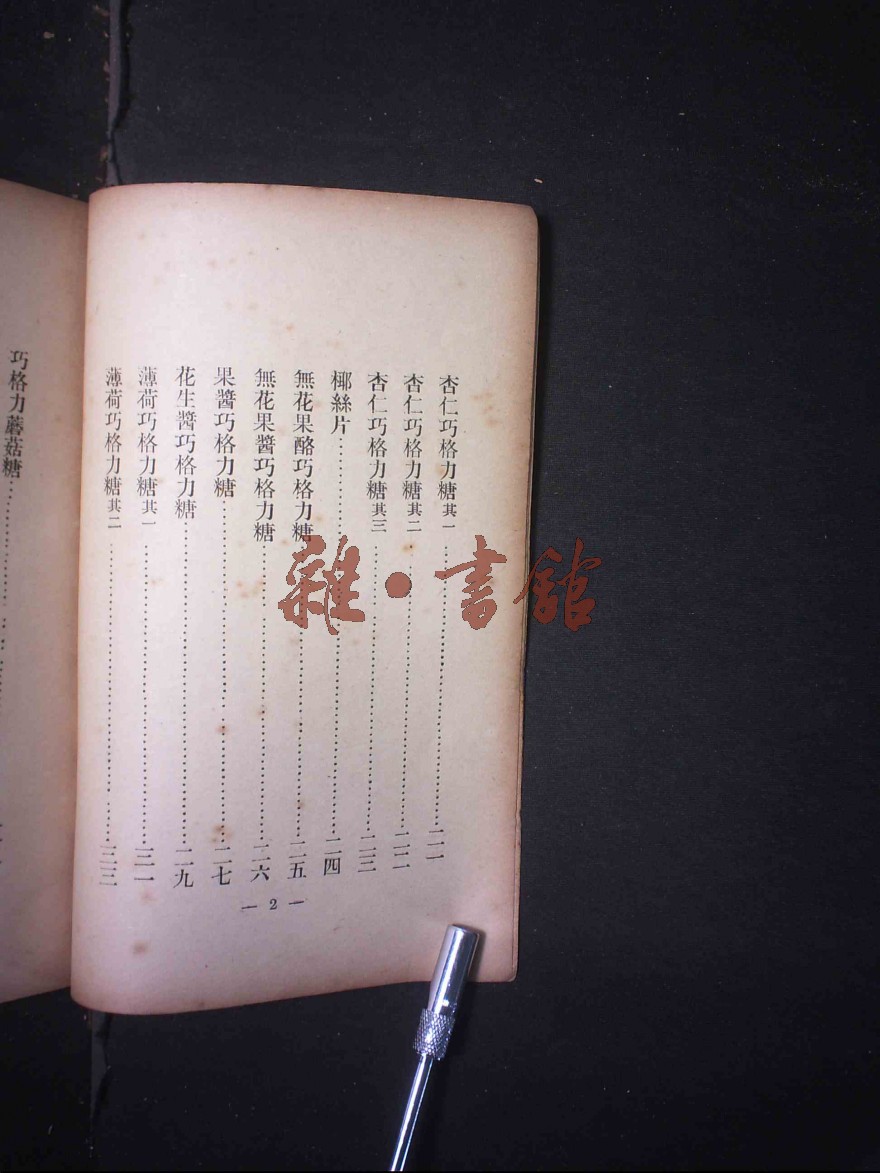 杏仁巧格力糖其一……二一
杏仁巧格力糖其二……二二
杏仁巧格力糖其三……二三
椰絲片……二四
無花果酪巧格力糖……二五
無花果醬巧格力糖……二六
果醬巧格力糖……二七
花生醬巧格力糖……二九
薄荷巧格力糖其一……三一
薄荷巧格力糖其二……三三
— 2 —
巧格力蘑菇糖……
雜·書館